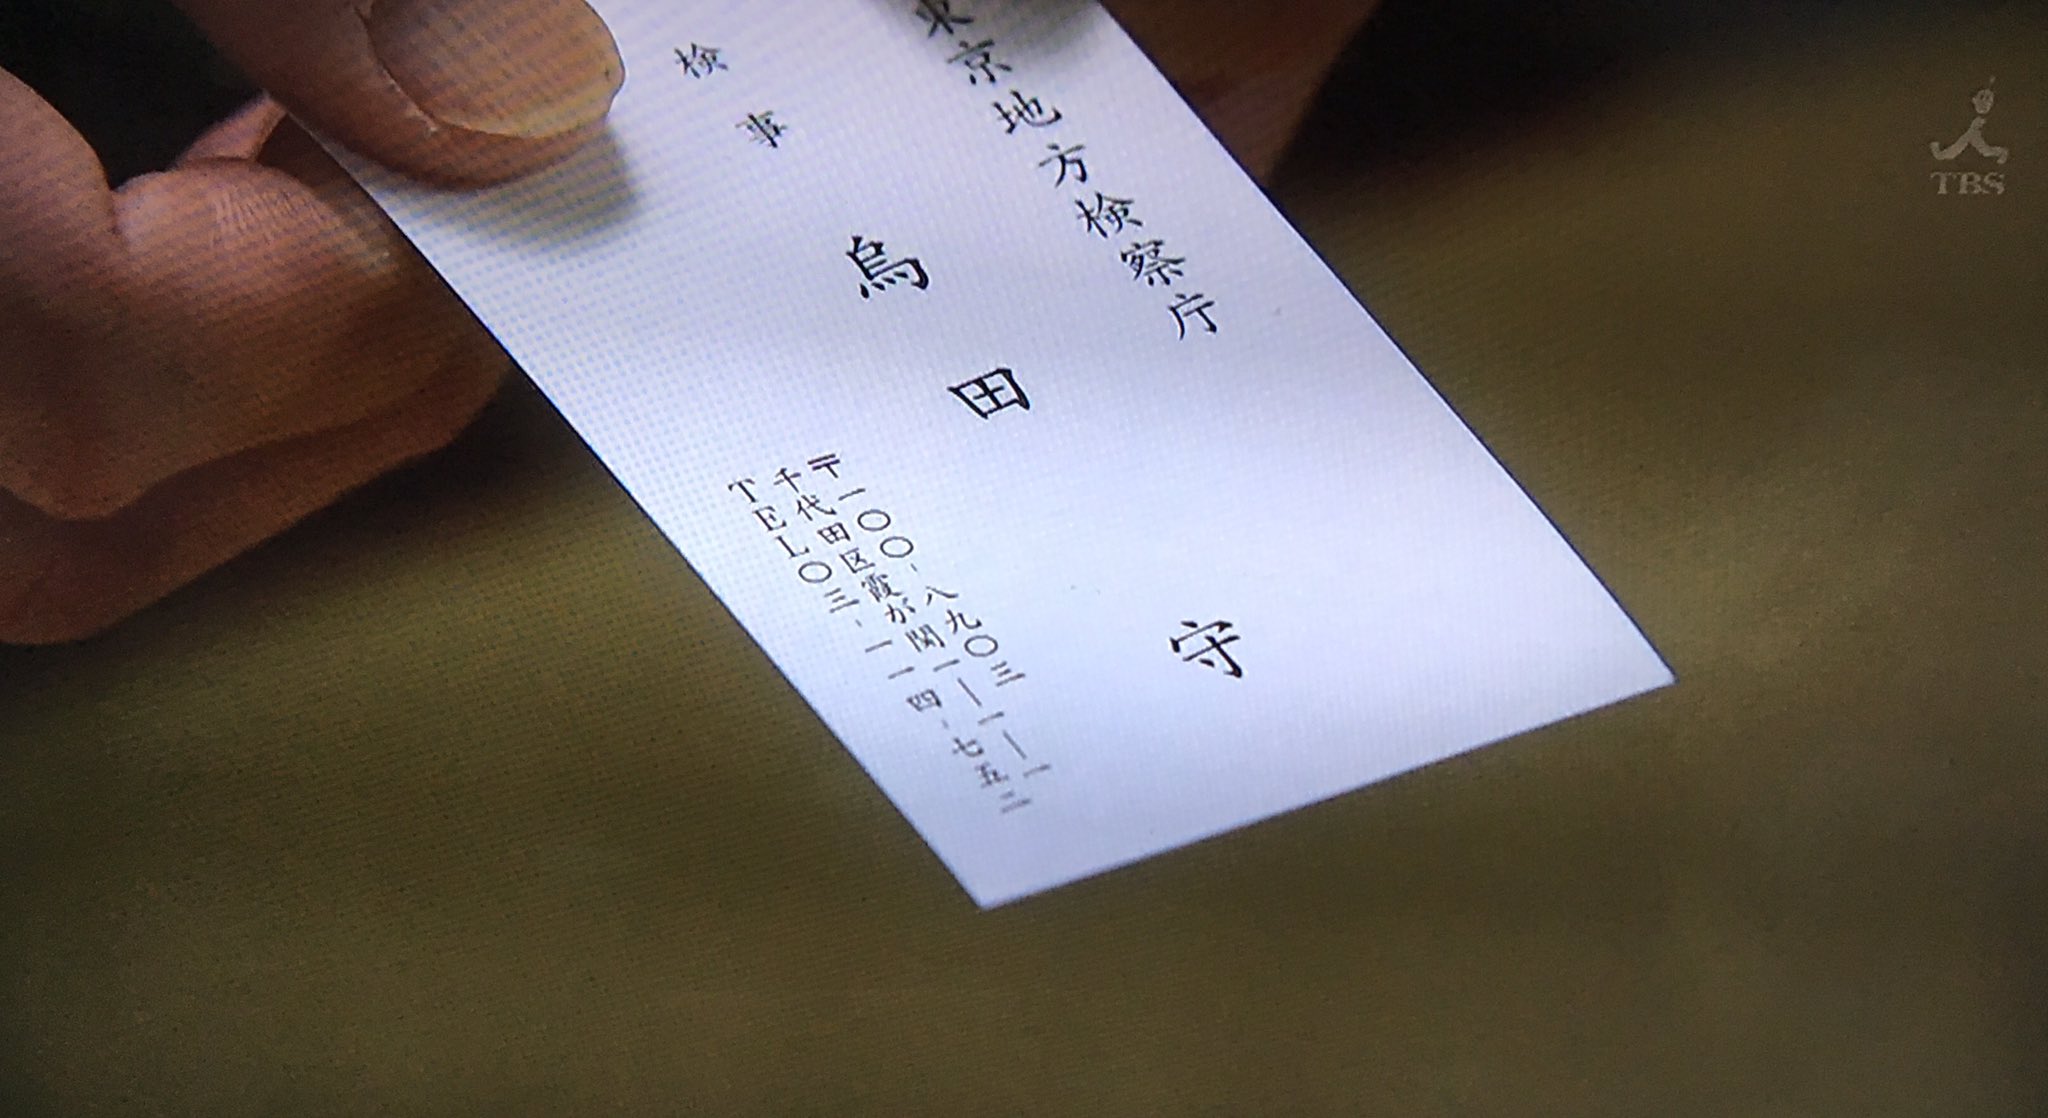 東京地方検察庁
検事 烏田 守
〒一〇〇-八九〇三
千代田区霞が関一―一―一
TEL〇三-一一四-七五二
TBS